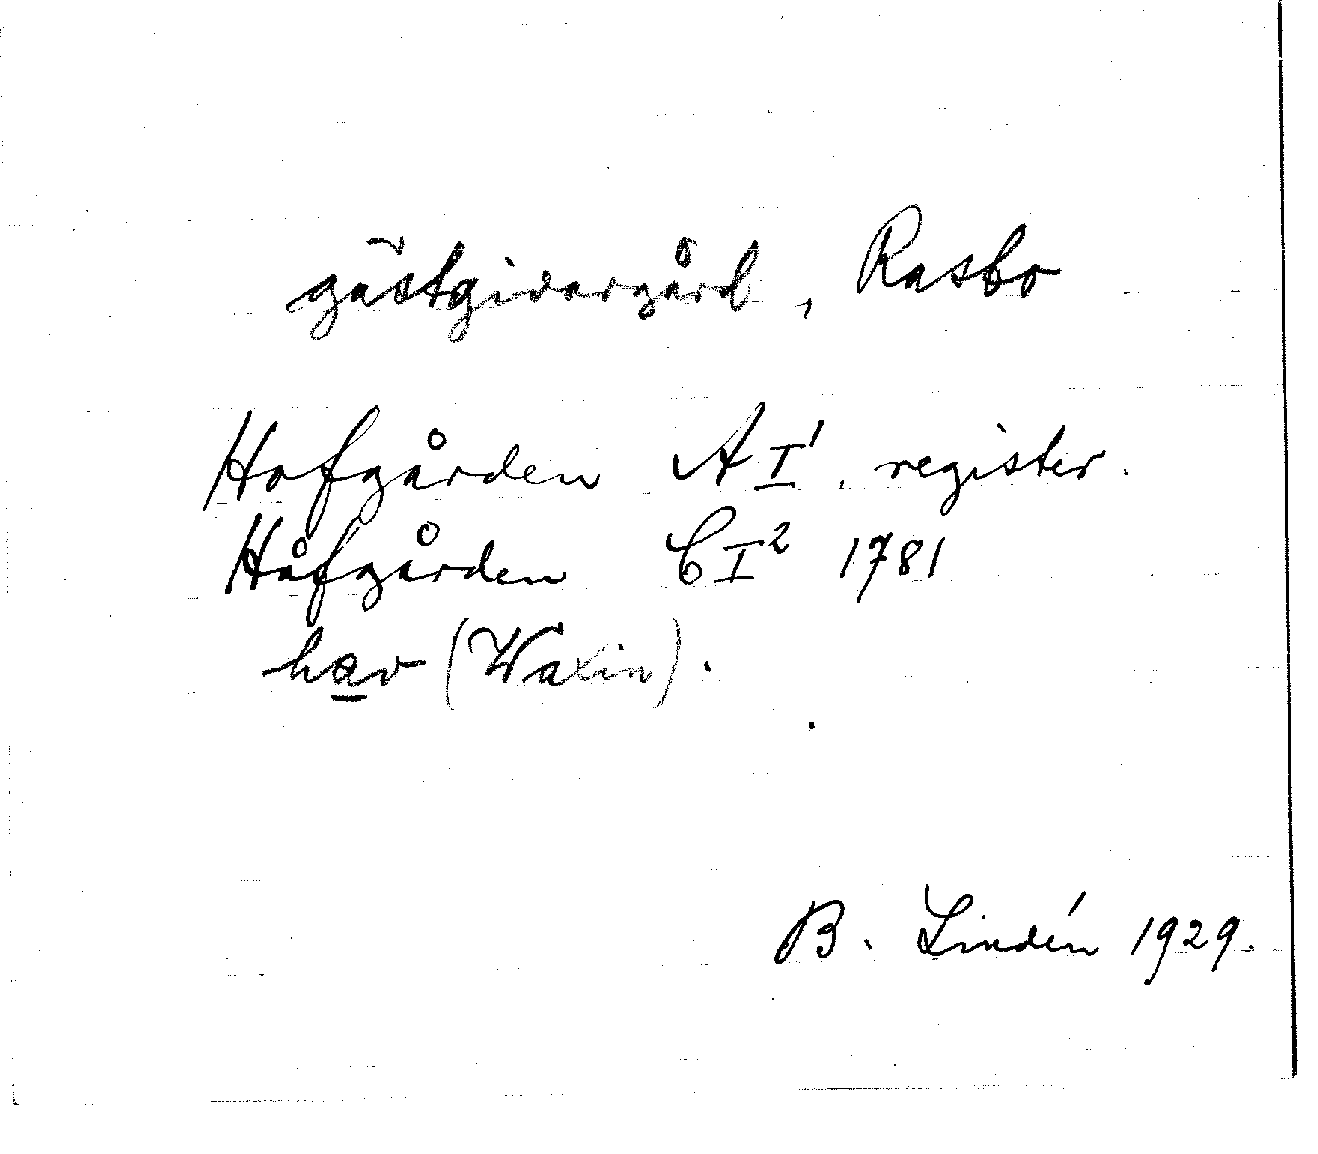 gästgivargård, Rasbo
Hofgården A I¹. register.
Håfgården C I² 1781
hav (Walin).
B. Lindén 1929.